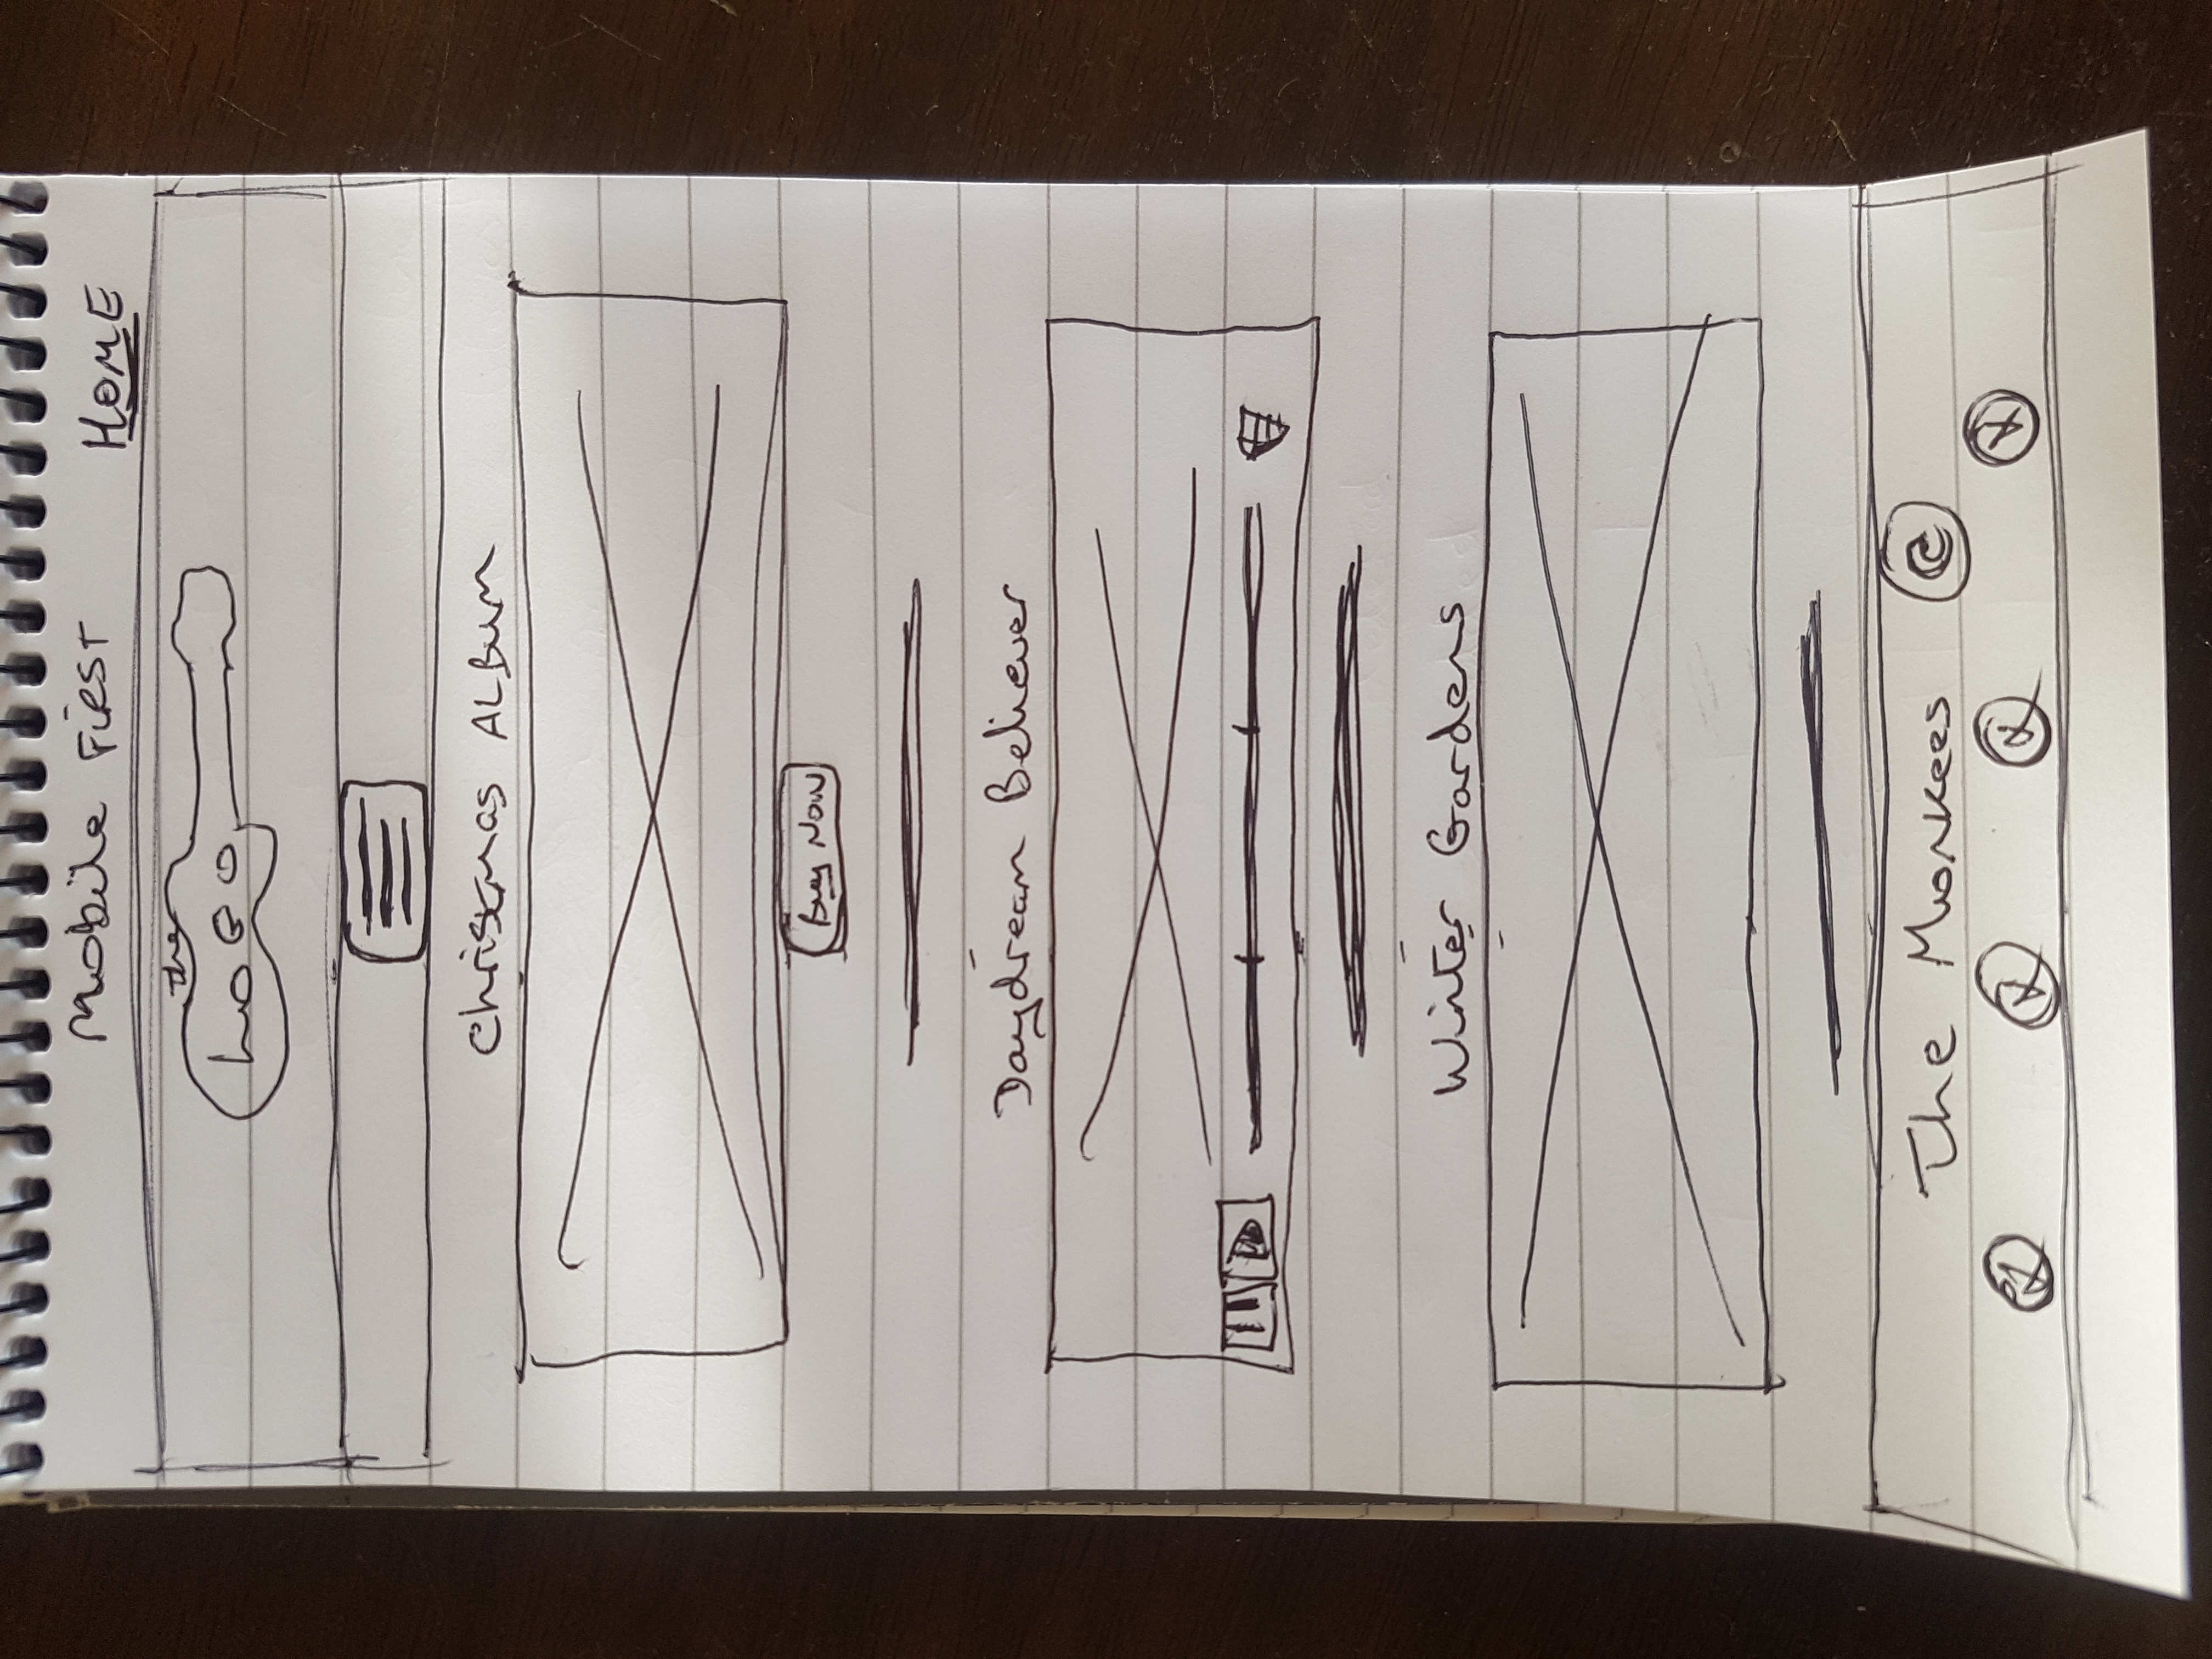 Mobile FIRST
HOME
the
LOGO
Christmas ALBum
Buy Now
Daydream Believer
Winter Gardens
The Monkees ©